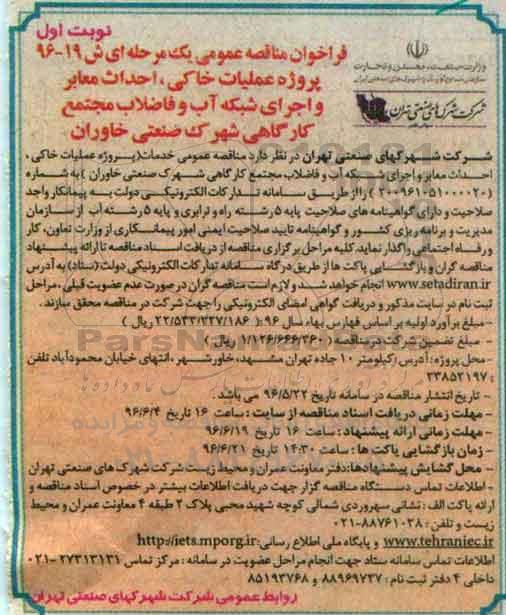 نوبت اول
فراخوان مناقصه عمومی یک مرحله ای ش ۱۹-۹۶
پروژه عملیات خاکی، احداث معابر
و اجرای شبکه آب و فاضلاب مجتمع
کارگاهی شهرک صنعتی خاوران
وزارت صنعت، معدن و تجارت
شرکت شهرکهای صنعتی تهران
شرکت شهرکهای صنعتی تهران در نظر دارد مناقصه عمومی خدمات (پروژه عملیات خاکی،
احداث معابر و اجرای شبکه آب و فاضلاب مجتمع کارگاهی شهرک صنعتی خاوران) به شماره
(۲۰۰۹۶۱۰۵۱۰۰۰۰۲۰) را از طریق سامانه تدارکات الکترونیکی دولت به پیمانکار واجد
صلاحیت و دارای گواهینامه های صلاحیت پایه ۵ رشته راه و ترابری و پایه ۵ رشته آب از سازمان
مدیریت و برنامه ریزی کشور و گواهینامه تایید صلاحیت ایمنی امور پیمانکاری از وزارت تعاون، کار
و رفاه اجتماعی واگذار نماید. کلیه مراحل برگزاری مناقصه از دریافت اسناد مناقصه تا ارائه پیشنهاد
مناقصه گران و بازگشایی پاکت ها از طریق درگاه سامانه تدارکات الکترونیکی دولت (ستاد) به آدرس
www.setadiran.ir انجام خواهد شد و لازم است مناقصه گران در صورت عدم عضویت قبلی، مراحل
ثبت نام در سایت مذکور و دریافت گواهی امضای الکترونیکی را جهت شرکت در مناقصه محقق سازند.
- مبلغ برآورد اولیه بر اساس فهارس بهاء سال ۹۶: ( ۲۲/۵۳۳/۲۲۷/۱۸۶ ریال )
- مبلغ تضمین شرکت در مناقصه ( ۱/۱۲۶/۶۶۶/۳۶۰ ریال )
- محل پروژه: آدرس/کیلومتر ۱۰ جاده تهران مشهد، خاورشهر، انتهای خیابان محمودآباد تلفن
: ۲۳۸۵۲۱۹۷
- تاریخ انتشار مناقصه در سامانه تاریخ ۹۶/۵/۲۲ می باشد.
- مهلت زمانی دریافت اسناد مناقصه از سایت: ساعت ۱۶ تاریخ ۹۶/۶/۴
- مهلت زمانی ارائه پیشنهاد: ساعت ۱۶ تاریخ ۹۶/۶/۱۹
- زمان بازگشایی پاکت ها: ساعت ۱۴:۳۰ تاریخ ۹۶/۶/۲۱
- محل گشایش پیشنهادها: دفتر معاونت عمران و محیط زیست شرکت شهرک های صنعتی تهران
- اطلاعات تماس دستگاه مناقصه گزار جهت دریافت اطلاعات بیشتر در خصوص اسناد مناقصه و
ارائه پاکت الف: نشانی سهروردی شمالی کوچه شهید محبی پلاک ۲ طبقه ۴ معاونت عمران و محیط
زیست و تلفن: ۸۸۷۶۱۰۲۸-۰۲۱
www.tehraniec.ir و پایگاه ملی اطلاع رسانی: http://iets.mporg.ir
اطلاعات تماس سامانه ستاد جهت انجام مراحل عضویت در سامانه: مرکز تماس ۲۷۳۱۳۱۳۱-۰۲۱
داخلی ۴ دفتر ثبت نام: ۸۸۹۶۹۷۳۷ و ۸۵۱۹۳۷۶۸
روابط عمومی شرکت شهرکهای صنعتی تهران